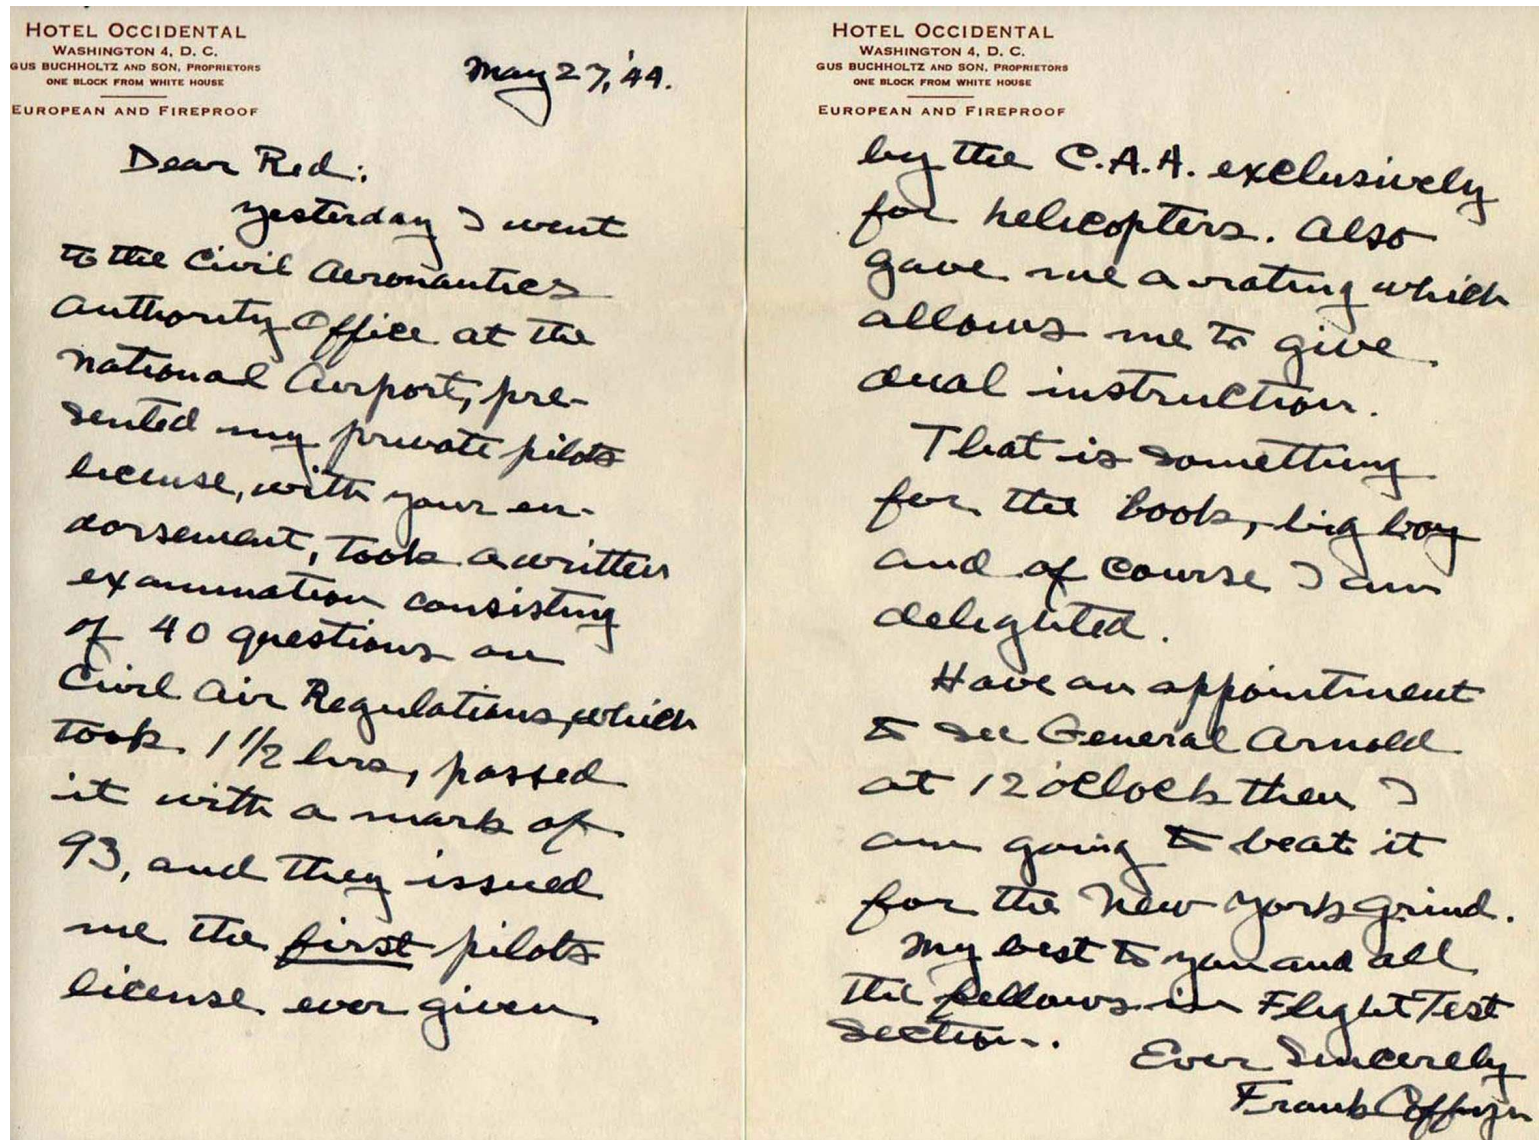 HOTEL OCCIDENTAL
WASHINGTON 4, D. C.
GUS BUCHHOLTZ AND SON, PROPRIETORS
ONE BLOCK FROM WHITE HOUSE
EUROPEAN AND FIREPROOF
May 27, '44.
Dear Red:
yesterday I went
to the Civil Aeronautics
Authority Office at the
National Airport, pre-
sented my private pilots
license, with your en-
dorsement, took a written
examination consisting
of 40 questions on
Civil Air Regulations, which
took 1 1/2 hrs, passed
it with a mark of
93, and they issued
me the first pilots
license ever given
HOTEL OCCIDENTAL
WASHINGTON 4, D. C.
GUS BUCHHOLTZ AND SON, PROPRIETORS
ONE BLOCK FROM WHITE HOUSE
EUROPEAN AND FIREPROOF
by the C.A.A. exclusively
for helicopters. Also
gave me a rating which
allows me to give
dual instruction.
That is something
for the book, big boy
and of course I am
delighted.
Have an appointment
to see General Arnold
at 12 o'clock then I
am going to beat it
for the New York grind.
My best to you and all
the fellows in Flight Test
Section.
Ever Sincerely
Frank Coffyn